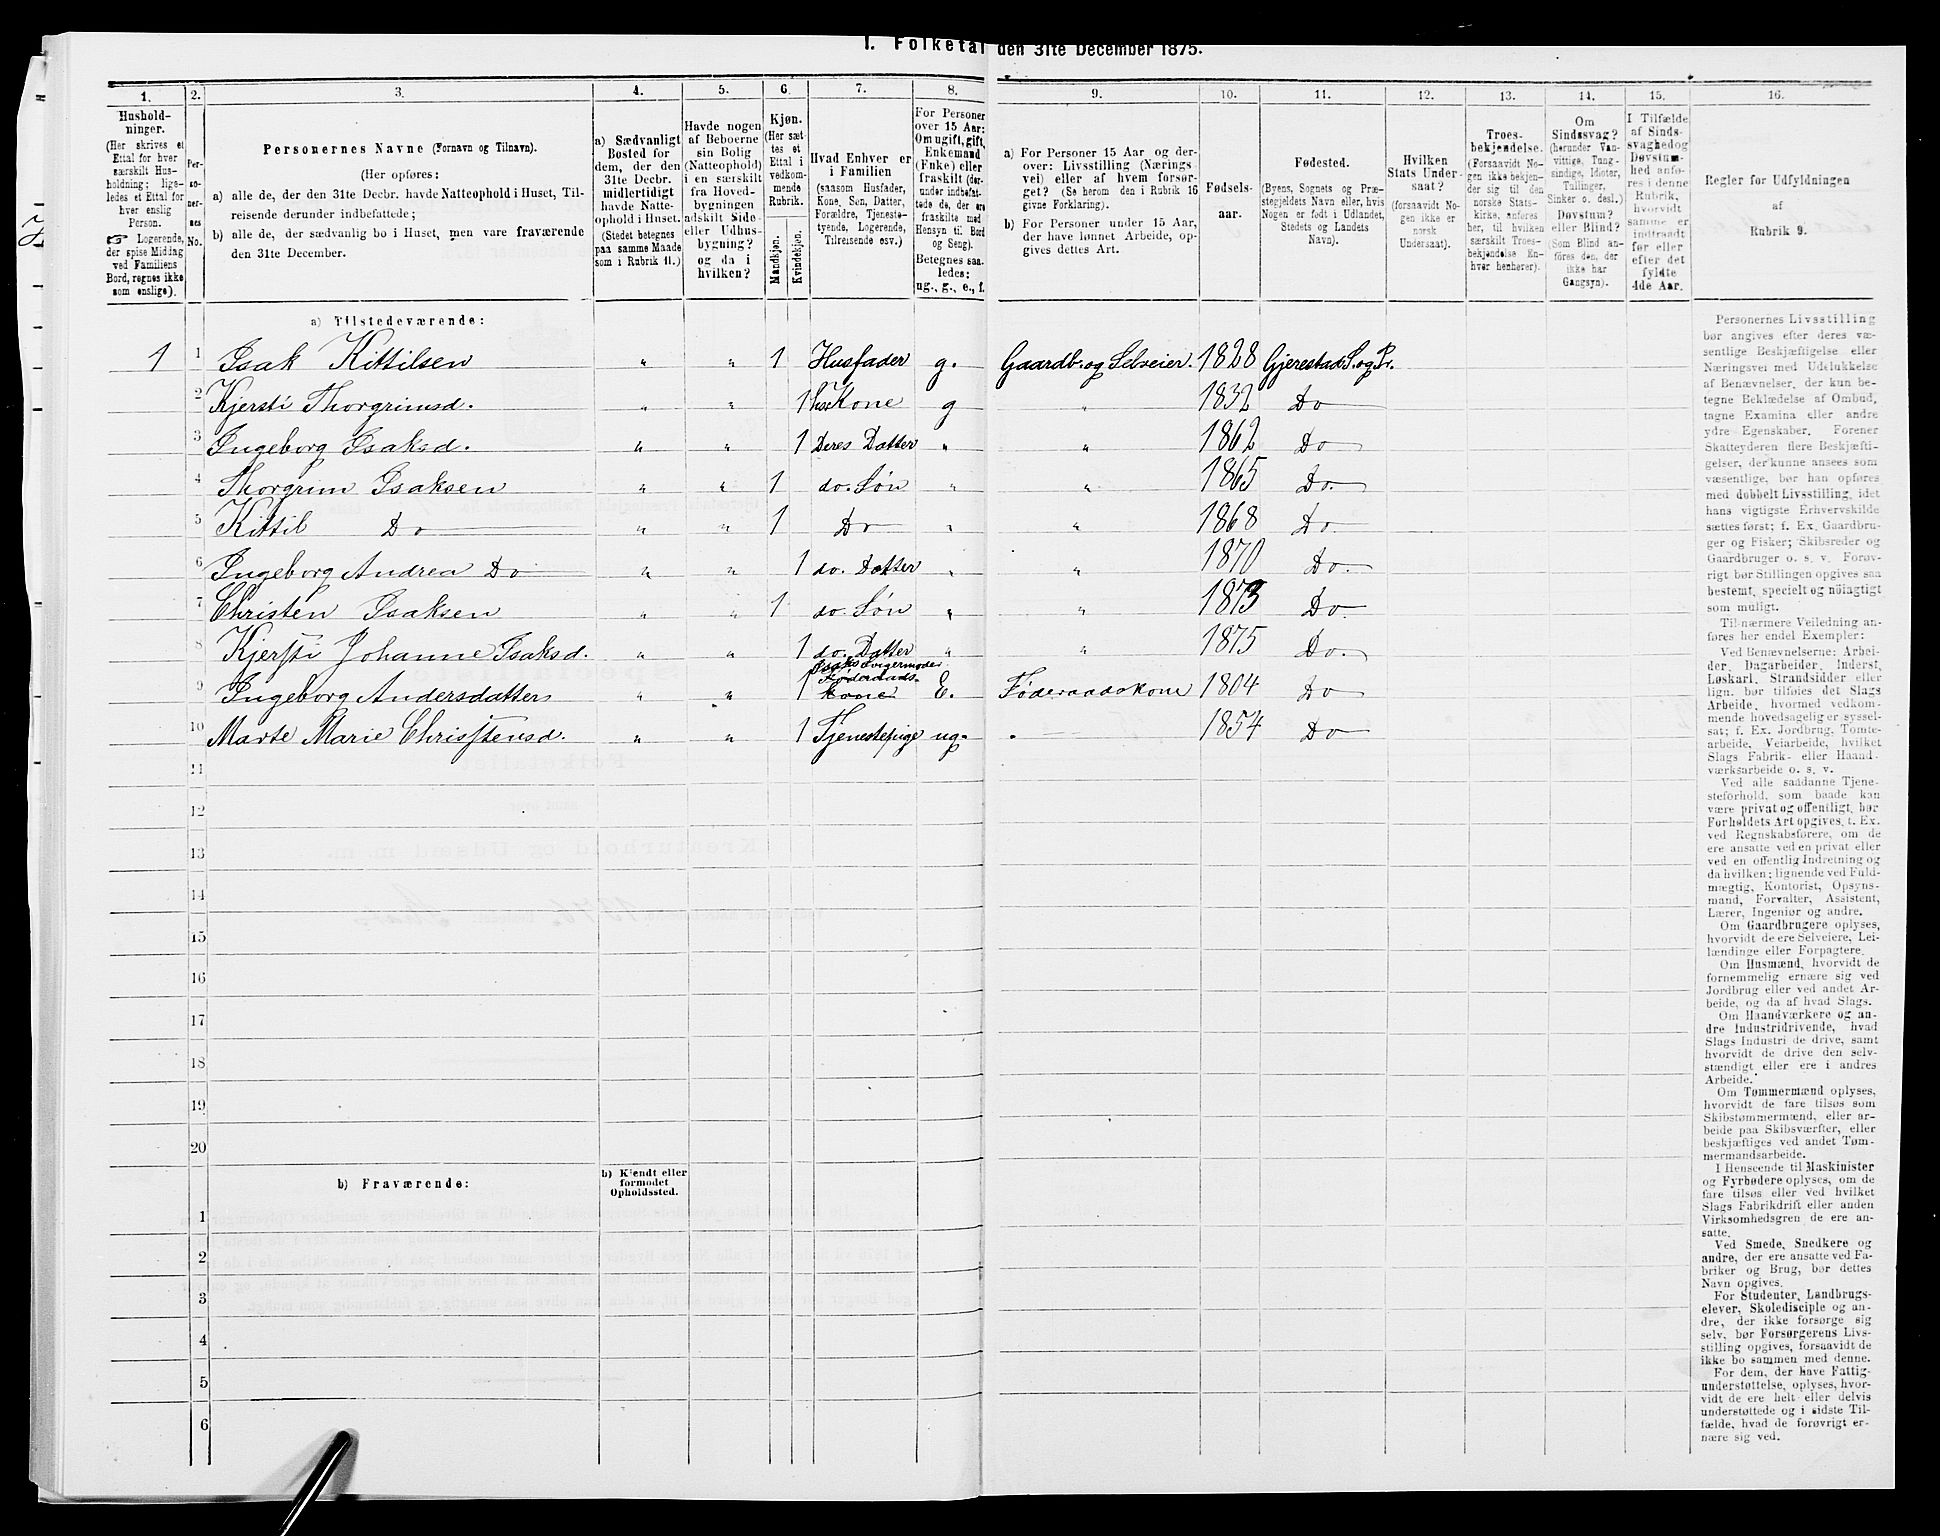 I. Folketal den 31te December 1875.
1. 2. 3. 4. 5. 6. 7. 8. 9. 10. 11. 12. 13. 14. 15. 16.
Hushold-
ninger.
(Her skrives et
Ettal for hver
særskilt Hus-
holdning; lige-
ledes et Ettal for
hver enslig
Person.
☞ Logerende,
der spise Middag
ved Familiens
Bord, regnes ikke
som enslige).
Per-
so-
ner-
nes
No.
Personernes Navne (Fornavn og Tilnavn).
(Her opføres:
a) alle de, der den 31te Decbr. havde Natteophold i Huset, Til-
reisende derunder indbefattede;
b) alle de, der sædvanlig bo i Huset, men vare fraværende
den 31te December.
a) Sædvanligt
Bosted for
dem, der den
31te Decbr.
midlertidigt
havde Natte-
ophold i Huset.
(Stedet betegnes
paa samme Maade
som i Rubrik 11.)
Havde nogen
af Beboerne
sin Bolig
(Natteophold)
i en særskilt
fra Hoved-
bygningen
adskilt Side-
eller Udhus-
bygning?
og da i
hvilken?
Kjøn.
(Her sæt-
tes et
Ettal i
vedkom-
mende
Rubrik.
Mandkjøn.
Kvindekjøn.
Hvad Enhver er
i Familien
(saasom Husfader,
Kone, Søn, Datter,
Forældre, Tjeneste-
tyende, Logerende,
Tilreisende osv.)
For Personer
over 15 Aar:
Om ugift, gift,
Enkemand
(Enke) eller
fraskilt (der-
under indbefat-
tede de, der ere
fraskilte med
Hensyn til Bord
og Seng).
Betegnes saa-
ledes:
ug., g., e., f.
a) For Personer 15 Aar og der-
over: Livsstilling (Nærings-
vei) eller af hvem forsør-
get? (Se herom den i Rubrik 16
givne Forklaring).
b) For Personer under 15 Aar,
der have lønnet Arbeide, op-
gives dettes Art.
Fødsels-
aar.
Fødested.
(Byens, Sognets og Præ-
stegjeldets Navn eller, hvis
Nogen er født i Udlandet,
Stedets og Landets
Navn).
Hvilken
Stats Under-
saat?
(forsaavidt No-
gen ikke er
norsk
Undersaat).
Troes-
bekjendelse.
(Forsaavidt No-
gen ikke bekjen-
der sig til den
norske Stats-
kirke, anføres
her, til hvilken
særskilt Troes-
bekjendelse En-
hver henhører).
Om
Sindssvag?
(herunder Van-
vittige, Tung-
sindige, Idioter,
Tullinger,
Sinker o. desl.)
Døvstum?
eller Blind?
(Som Blind an-
føres den, der
ikke har
Gangsyn).
I Tilfælde
af Sinds-
svaghed og
Døvstum-
hed anfø-
res i denne
Rubrik,
hvorvidt
samme er
indtraadt
før eller
efter det
fyldte
4de Aar.
Regler for Udfyldningen
af
Rubrik 9.
a) Tilstedeværende:
1 1 Isak Kittilsen " " 1 Husfader g. Gaardb. og Selveier. 1828 Gjerestad S. og Pr.
2 Kjersti Thorgrimsd. " " 1 hs Kone g " 1832 Do
3 Ingeborg Isaksd. " " 1 Deres Datter " " 1862 Do
4 Thorgrim Isaksen " " 1 do. Søn " " 1865 Do.
5 Kittil Do " " 1 Do " " 1868 Do.
6 Ingeborg Andrea Do " " 1 do. Datter " " 1870 Do.
7 Christen Isaksen " " 1 do. Søn " " 1873 Do.
8 Kjersti Johanne Isaksd. " " 1 do. Datter " " 1875 Do.
9 Ingeborg Andersdatter " " 1 Isaks Svigermoder Føderaads-kone E. Føderaadskone 1804 Do
10 Marte Marie Christensd. " " 1 Tjenestepige ug. " 1854 Do
11
12
13
14
15
16
17
18
19
20
b) Fraværende:
b) Kjendt eller
formodet
Opholdssted.
1
2
3
4
5
6
Personernes Livsstilling
bør angives efter deres væ-
sentlige Beskjæftigelse eller
Næringsvei med Udelukkelse
af Benævnelser, der kun be-
tegne Beklædelse af Ombud,
tagne Examina eller andre
ydre Egenskaber. Forener
Skatteyderen flere Beskjæfti-
gelser, der kunne ansees som
væsentlige, bør han opføres
med dobbelt Livsstilling, idet
hans vigtigste Erhvervskilde
sættes først; f. Ex. Gaardbru-
ger og Fisker; Skibsreder og
Gaardbruger o. s. v. Forøv-
rigt bør Stillingen opgives saa
bestemt, specielt og nöiagtigt
som muligt.
Til nærmere Veiledning an-
føres her endel Exempler:
Ved Benævnelserne: Arbei-
der, Dagarbeider, Inderst,
Løskarl, Strandsidder eller
lign. bør tilføies det Slags
Arbeide, hvormed vedkom-
mende hovedsagelig er syssel-
sat; f. Ex. Jordbrug, Tomte-
arbeide, Veiarbeide, hvilket
Slags Fabrik- eller Haand-
værksarbeide o. s. v.
Ved alle saadanne Tjene-
steforhold, som baade kan
være privat og offentligt, bør
Forholdets Art opgives, t. Ex.
ved Regnskabsførere, om de
ere ansatte ved en privat eller
ved en offentlig Indretning og
da hvilken; lignende ved Fuld-
mægtig, Kontorist, Opsyns-
mand, Forvalter, Assistent,
Lærer, Ingeniør og andre.
Om Gaardbrugere oplyses,
hvorvidt de ere Selveiere, Lei-
lændinge eller Forpagtere.
Om Husmænd, hvorvidt de
fornemmelig ernære sig ved
Jordbrug eller ved andet Ar-
beide, og da af hvad Slags.
Om Haandværkere og an-
dre Industridrivende, hvad
Slags Industri de drive, samt
hvorvidt de drive den selv-
stændigt eller ere i andres
Arbeide.
Om Tømmermænd oplyses,
hvorvidt de fare tilsøs som
Skibstømmermænd, eller ar-
beide paa Skibsværfter, eller
beskjæftiges ved andet Tøm-
mermandsarbeide.
I Henseende til Maskinister
og Fyrbødere oplyses, om de
fare tilsøs eller ved hvilket
Slags Fabrikdrift eller anden
Virksomhedsgren de ere an-
satte.
Ved Smede, Snedkere og
andre, der ere ansatte ved Fa-
briker og Brug, bør dettes
Navn opgives.
For Studenter, Landbrugs-
elever, Skoledisciple og an-
dre, der ikke forsørge sig
selv, bør Forsørgerens Livs-
stilling opgives, forsaavidt de
ikke bo sammen med denne.
For dem, der have Fattig-
understøttelse, oplyses, hvor-
vidt de ere helt eller delvis
understøttede og i sidste Til-
fælde, hvad de forøvrigt er-
nære sig ved.